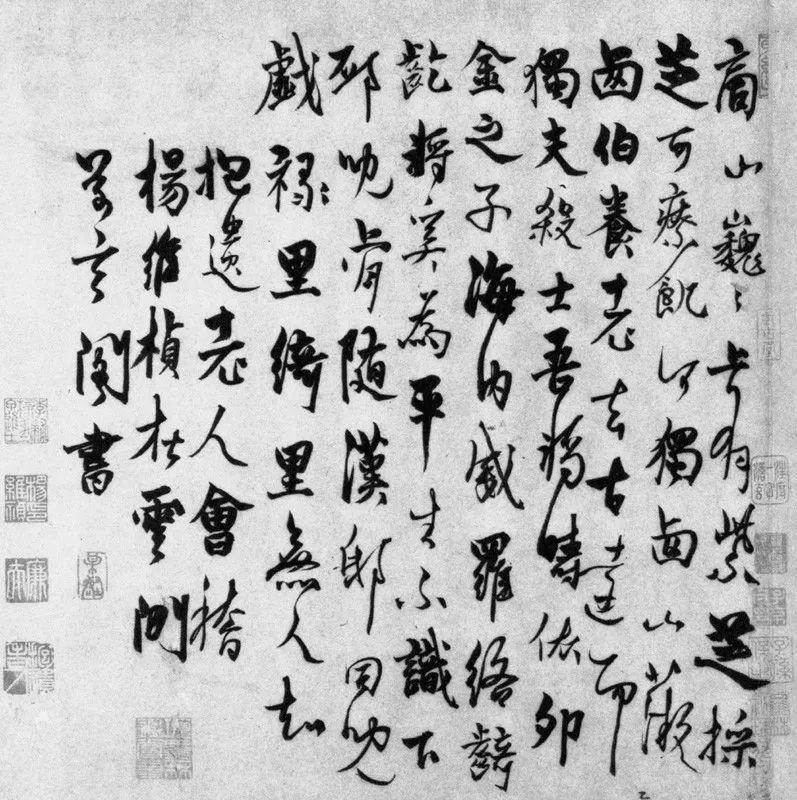 商山巍〻上有紫芝採
芝可療飢何獨西山薇
西伯養老去古遠而
獨夫殺士吾將疇依卯
金之子海內威羅絡齮
齕將奚為平生不識下
邳肯隨漢邸
戲祿〻里綺里無人知
抱遺老人會稽
楊維楨在雲間
草玄閣書